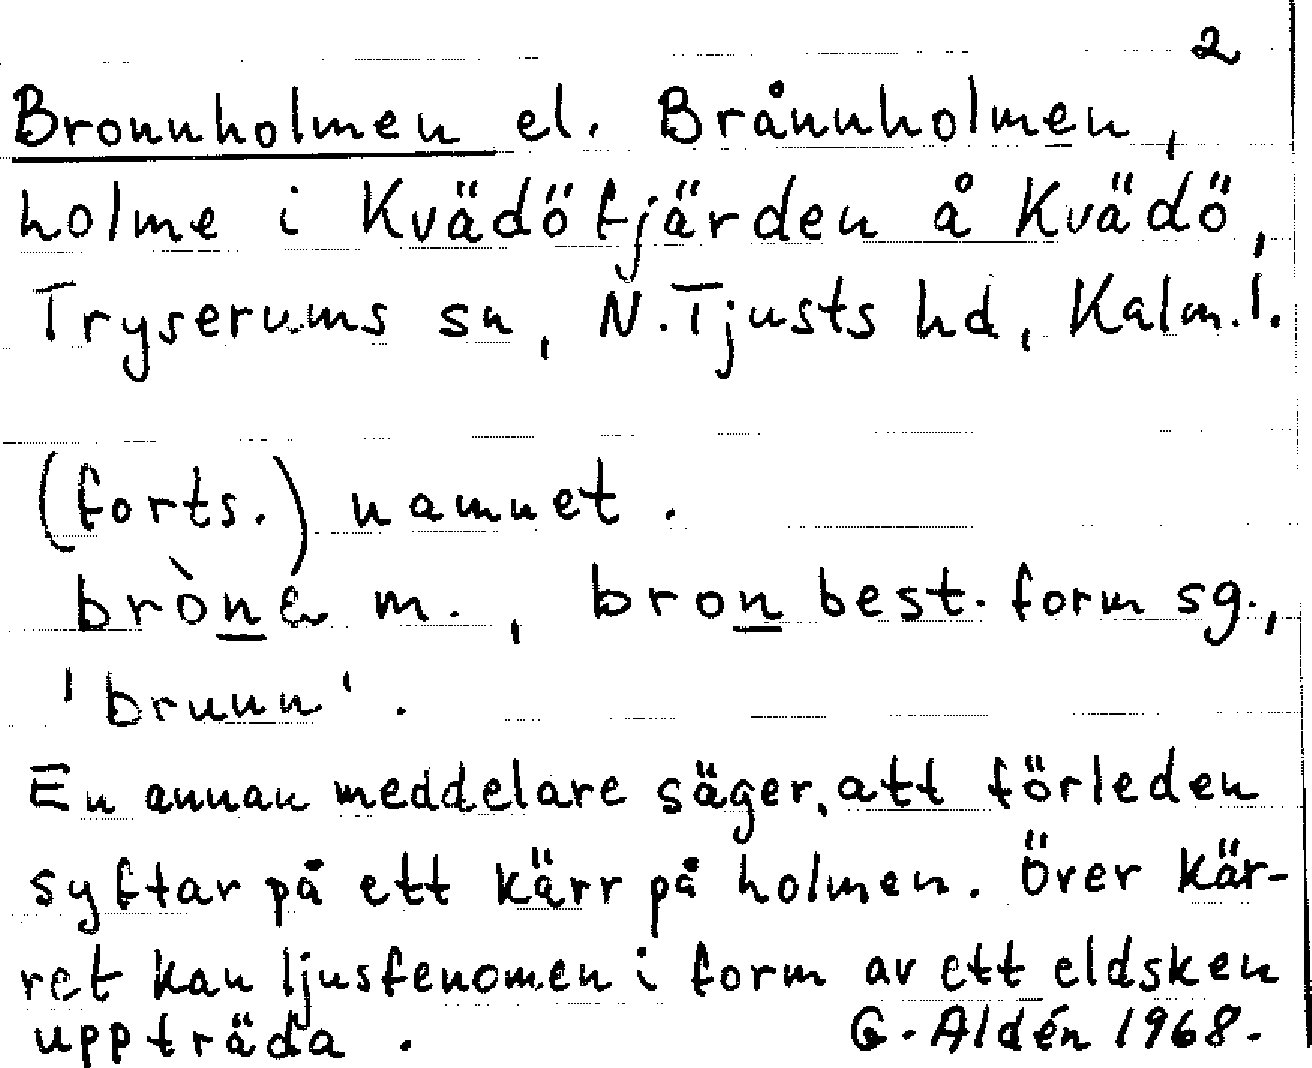 2
Bronnholmen el. Brånnholmen,
holme i Kvädöfjärden å Kvädö,
Tryserums sn, N. Tjusts hd, Kalm. l.
(forts.) namnet.
bròne m., bron best. form sg.,
'brunn'.
En annan meddelare säger, att förleden
syftar på ett kärr på holmen. Över kär-
ret kan ljusfenomen i form av ett eldsken
uppträda. G. Aldén 1968.